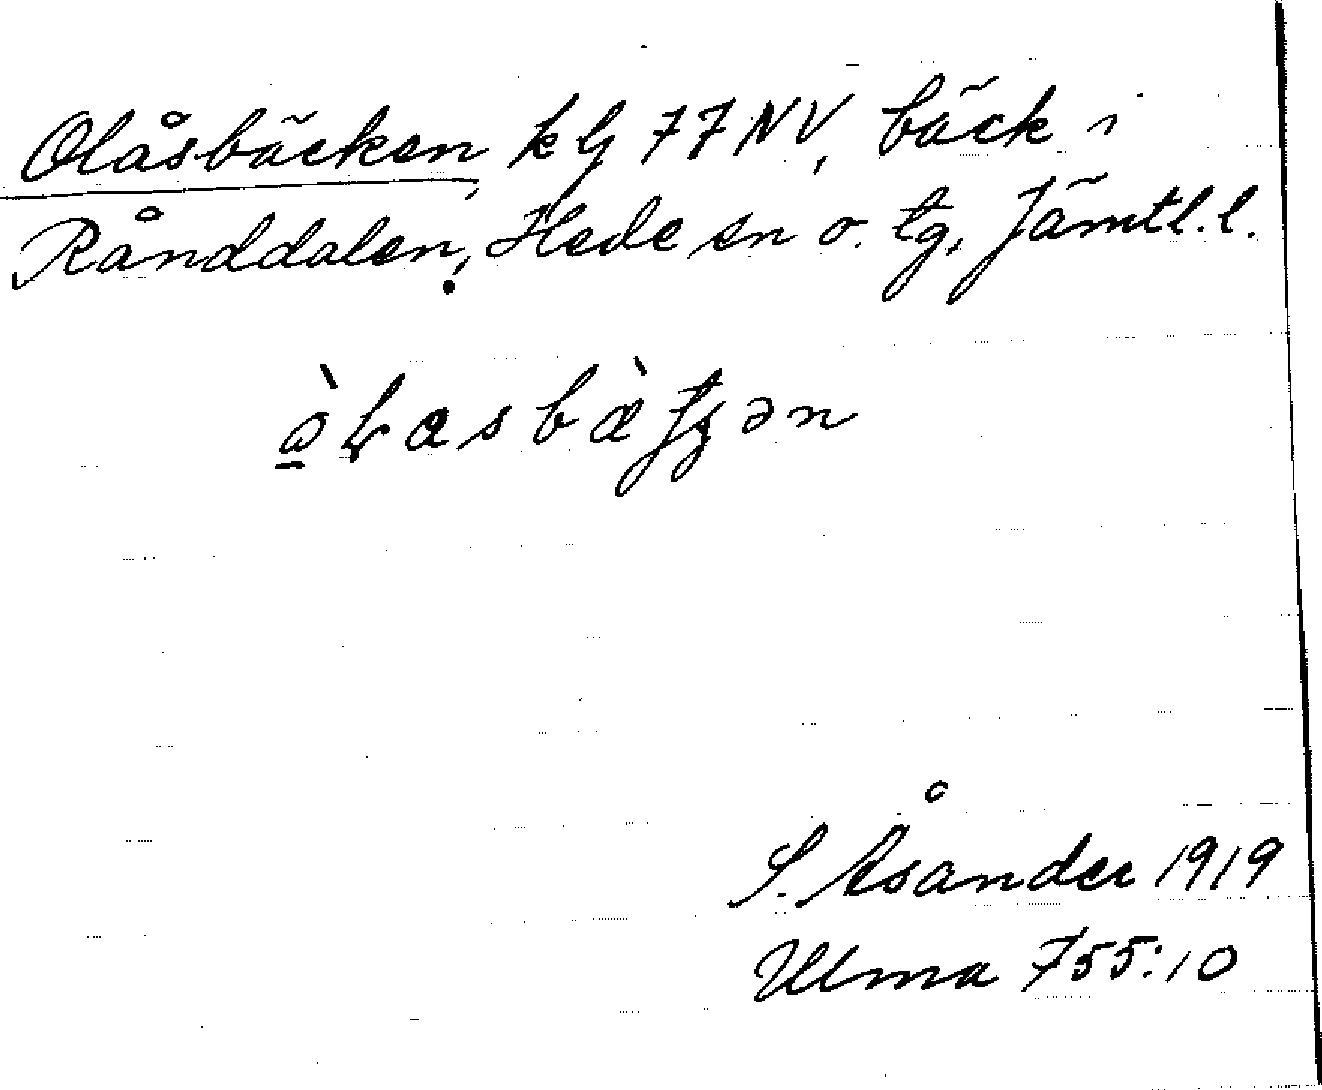 Olåsbäcken, kbl 77 NV, bäck i
Rånddalen, Hede sn o. tg, Jämtl. l.
S. Åsander 1919
Ulma 755:10